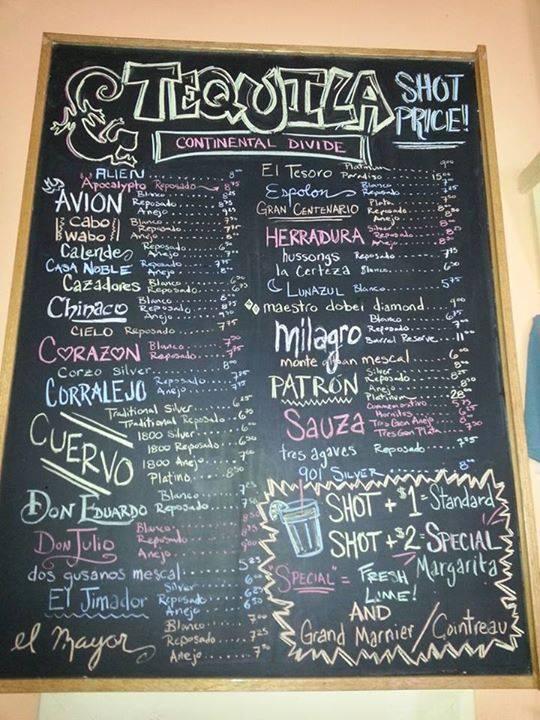 TEQUILA
SHOT PRICE!
CONTINENTAL DIVIDE
ALIEN 8⁰⁰
Apocalypto Reposado 8⁷⁵
AVION Blanco
Reposado 8⁷⁵
Anejo 9²⁵
Cabo Wabo Blanco
Reposado
Anejo 8⁰⁰
Calende Reposado
Anejo
CASA NOBLE Reposado
Anejo
Cazadores Blanco
Reposado
Chinaco Blanco
Reposado
Anejo
CIELO Reposado 7⁷⁵
CORAZON Blanco
Reposado
Corzo Silver
CORRALEJO Reposado
Anejo
CUERVO Traditional Silver 6²⁵
Traditional Reposado
1800 Silver
1800 Reposado
1800 Anejo
Platino 8⁵⁰
Don Eduardo Blanco
Reposado
Don Julio Blanco
Reposado
Anejo 9⁰⁰
dos gusanos mescal
El Jimador Silver
Reposado
Anejo 6⁵⁰
el Mayor Blanco 7⁰⁰
Reposado 7²⁵
Anejo 7⁵⁰
El Tesoro Platinum 9⁰⁰
Paradiso 15⁰⁰
Espolon Blanco
Reposado
GRAN CENTENARIO Plata
Reposado
Anejo
HERRADURA Silver
Reposado
Anejo
hussongs Reposado 7⁷⁵
la Certeza Blanco 6⁰⁰
LUNAZUL Blanco 5⁷⁵
maestro dobel diamond 9⁰⁰
Milagro Blanco
Reposado
Barrel Reserve 11⁰⁰
monte alban mescal 6⁰⁰
PATRÓN Silver
Reposado
Anejo
Platinum 28⁵⁰
Sauza Conmemorativo
Hornitos
Tres Gen Anejo
Tres Gen Plata
tres agaves Reposado 7²⁵
901 SILVER 8⁰⁰
SHOT + $1 = Standard
SHOT + $2 = SPECIAL
Margarita
"SPECIAL" = FRESH
LIME!
AND
Grand Marnier / Cointreau